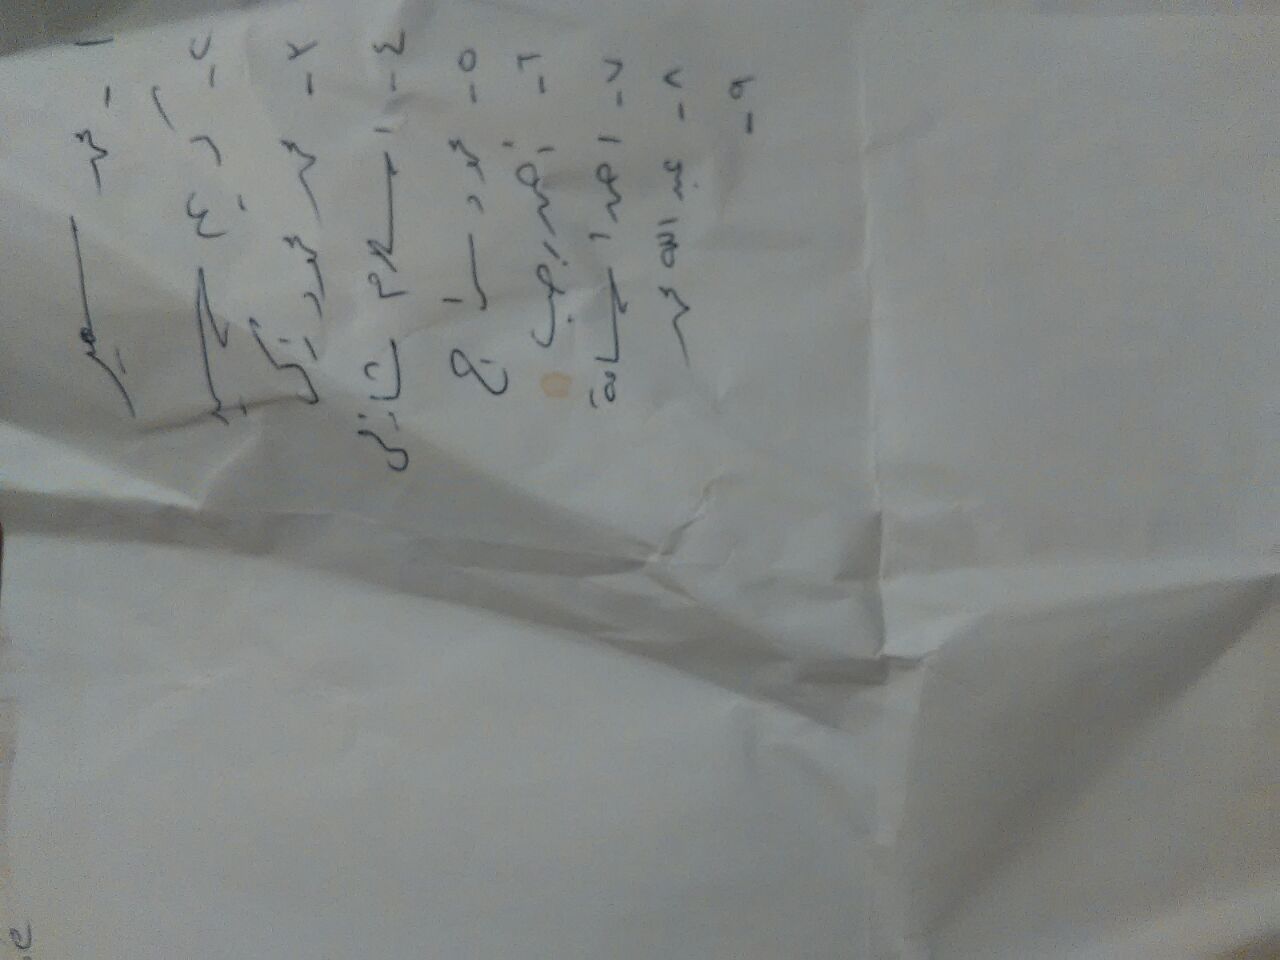 ١ - محمد سمير
٢ - كريم سمير
٣ - محمد محمود زكى
٤ - اسلام شاذلى
٥ - محمود سراج
٦ - أحمد رجب
٧ - احمد اسامة
٨ - عبد الله محمد
٩ -